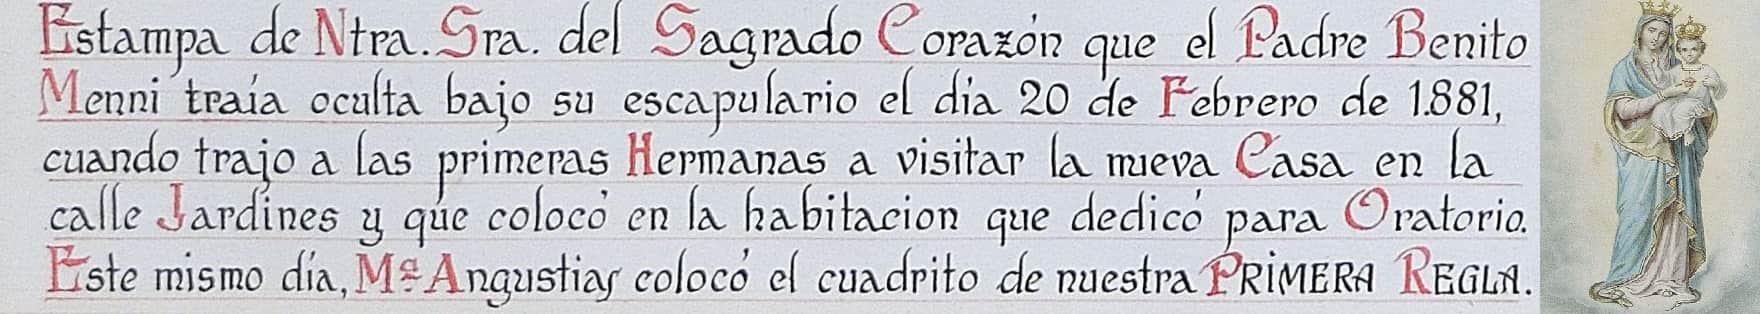 Estampa de Ntra. Sra. del Sagrado Corazón que el Padre Benito
Menni traía oculta bajo su escapulario el día 20 de Febrero de 1.881,
cuando trajo a las primeras Hermanas a visitar la nueva Casa en la
calle Jardines y que colocó en la habitacion que dedicó para Oratorio.
Este mismo día, Mª Angustias colocó el cuadrito de nuestra PRIMERA REGLA.